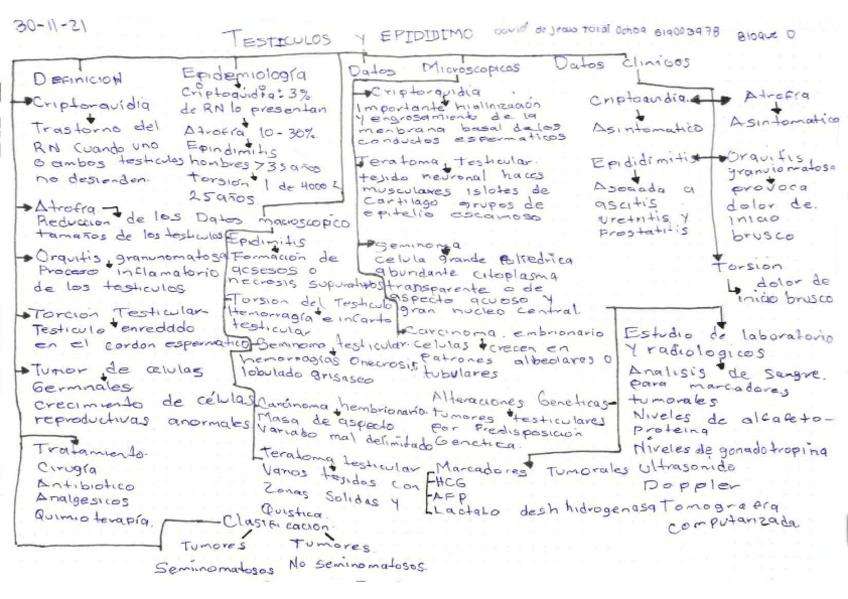 30-11-21
TESTICULOS Y EPIDIDIMO
david de jesus Total Ochoa 619003978 Bloque D
DEFINICION
Criptorquidia
Trastorno del
RN Cuando uno
o ambos testiculos
no desienden.
Atrofia
Reduccion de los
tamaños de los testiculos
Orquitis granunomatosa
Proceso inflamatorio
de los testiculos
Torcion Testicular
Testiculo enredado
en el cordon espermatico
Tumor de celulas
Germinales
Crecimiento de células
reproductivas anormales
Tratamiento
Cirugía
Antibiotico
Analgesicos
Quimioterapía.
Epidemiología
Criptoquidia: 3%
de RN lo presentan
Atrofia 10-30%
Epindimitis
hombres >35 años
Torsion 1 de 4000
25años
Datos macroscopico
Epidimitis
Formación de
acsesos o
necrosis supurativas
Torsion del Testiculo
Hemorragía e infarto
testicular
Seminoma testicular
hemorragias o necrosis
lobulado grisaseo
Carcinoma hembrionario
Masa de aspecto
Variado mal delimitado
Teratoma testicular
Varios tejidos con
Zonas Solidas y
Quistica.
Clasificacion
Tumores
Seminomatosos
Tumores
No seminomatosos
Datos Microscopicos
Criptorquidia
Importante hialinización
y engrosamiento de la
menbrana basal de los
conductos espermaticos
Teratoma Testicular
tejido neuronal haces
musculares islotes de
Cartilago grupos de
epitelio escamoso
Seminoma
Celula grande poliedrica
abundante citoplasma
transparente o de
aspecto acuoso y
gran nucleo central.
Carcinoma embrionario
celulas crecen en
Patrones albeolares o
tubulares
Alteraciones Geneticas
tumores testiculares
por Predisposición
Genetica.
Marcadores Tumorales
HCG
AFP
Lactato deshhidrogenasa
Datos clinicos
Criptoquidia
Asintomatico
Atrofia
Asintomatico
Epididimitis
Asociada a
Uretritis y
Prostatitis
Orquitis
granulomatosa
provoca
dolor de
inicio
brusco
Torsion
dolor de
inicio brusco
Estudio de laboratorio
y radiologicos
Analisis de Sangre
para marcadores
tumorales
Niveles de alfafeto-
proteina
Niveles de gonadotropina
Ultrasonido
Doppler
Tomografía
computarizada